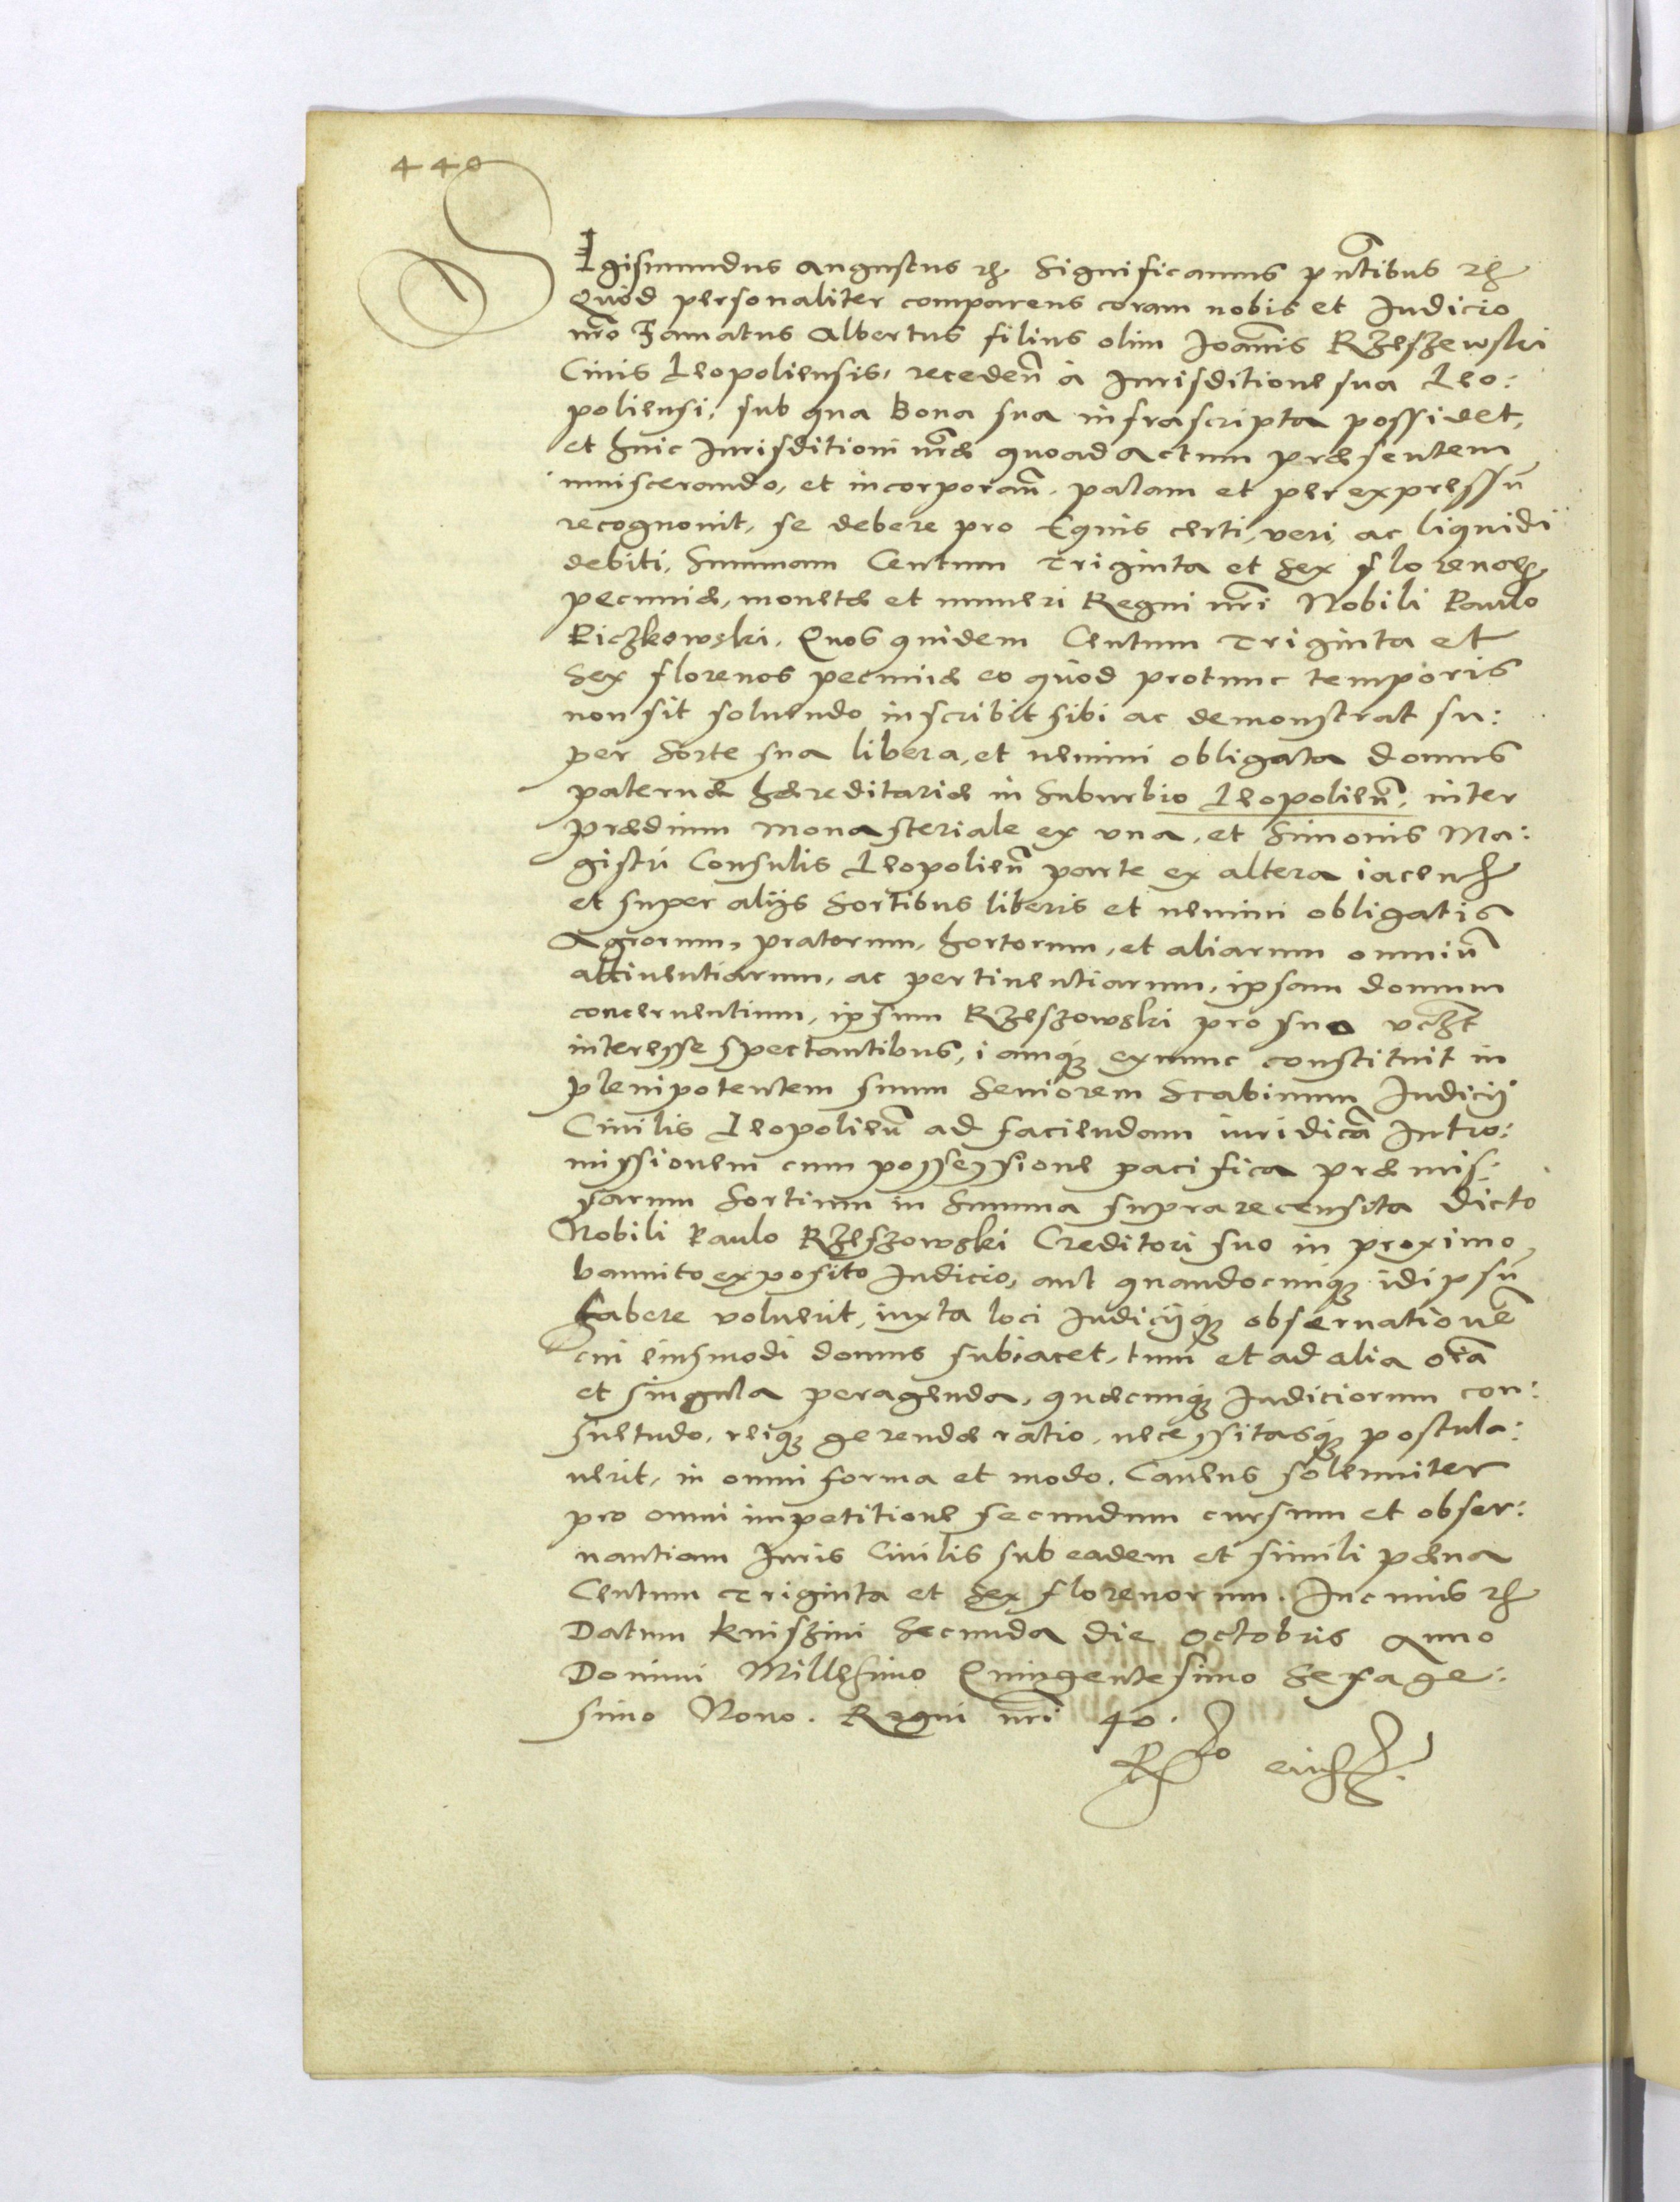 440
SIgismundus augustus etc. Significamus pñtibus etc.
Quòd personaliter comparens coram nobis et Iudicio
nr̃o Famatus Albertus filius olim Ioañis Rzeszewski
Ciuis Leopoliensis, recedeñ à Iurisditione sua Leo:
poliensi, sub qua Bona sua infrascripta possidet,
et huic Iurisditioni nr̃æ quoad actum præsentem
inuiscerando, et incorporañ. palam et per expressũ
recognouit, se debere pro Equis certi, veri, ac liquidi
debiti, Summam Centum Triginta et Sex florenor̃.
pecuniæ, monetæ et numeri Regni nr̃i Nobili Paulo
Piczkowski. Quos quidem Centum Triginta et
Sex florenos pecuniæ eo quòd protunc temporis
non sit soluendo inscribit sibi ac demonstrat su:
per Sorte sua libera, et nemini obligata domus
paternæ hæreditariæ in Suburbio Leopolieñ, inter
prædium monasteriale ex vna, et Simonis Ma:
gistri Consulis Leopolieñ parte ex altera iacen̄
et super alijs Sortibus liberis et nemini obligatis
Agrorum, pratorum, hortorum, et aliarum omniũ
attinentiarum, ac pertinentiarum, ipsam domum
concernentium, ipsum Rzeszowski pro suo vtcz̃t
interesse spectantibus, iamq́; exnunc constituit in
plenipotentem suum Seniorem Scabinum Iudicij
Ciuilis Leopolieñ ad faciendam iuridicã Intro:
missionem cum possessione pacifica præmis:
sarum Sortium in Summa suprarecensita dicto
Nobili Paulo Rzeszowski Creditori suo in proximo
bannito exposito Iudicio, aut quandocunq; idipsũ
habere voluerit, iuxta loci Iudicijq; obseruationẽ
cui eiusmodi domus subiacet, tum et ad alia oĩa
et singula peragenda, quæcunq; Iudiciorum con:
suetudo, reiq; gerendæ ratio, necessitasq́; postula:
uerit, in omni forma et modo. Cauens solenniter
pro omni impetitione secundum cursum et obser:
uantiam Iuris Ciuilis sub eadem et simili pœna
Centum Triginta et Sex florenorum. In cuius etc.
Datum Kniszini Secunda die Octobris anno
Domini Millesimo Quingentesimo Sexage:
simo Nono. Regni nr̃i 40.
R͂lo eiusd.